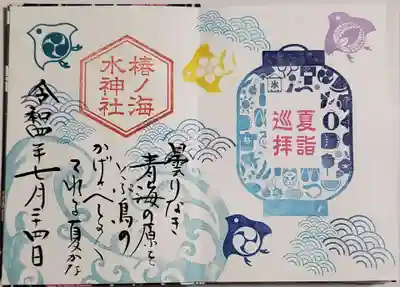 夏詣
巡拝
氷
椿ノ海
水神社
曇りなき
青海の原を
とぶ鳥の
かげさへしるく
てれる夏かな
令和四年七月二十四日